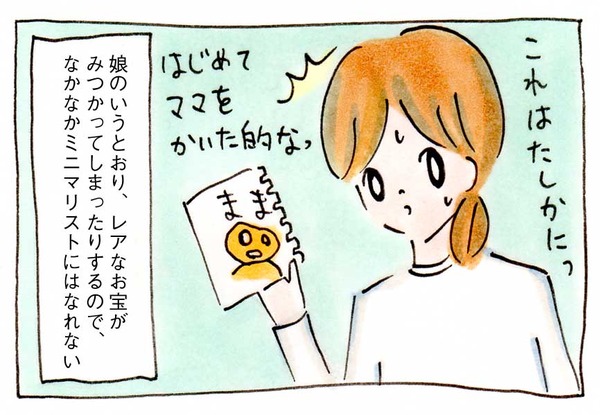 これはたしかにっ
はじめて
ママを
かいた的なっ
まま
娘のいうとおり、レアなお宝が
みつかってしまったりするので、
なかなかミニマリストにはなれない